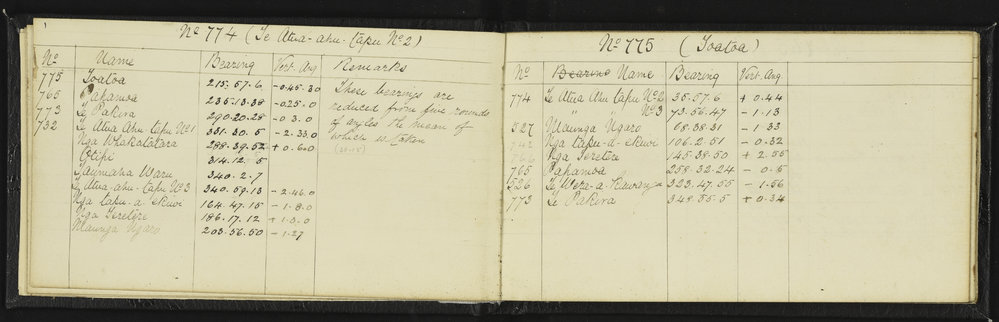 1
No 774 (Te Atua-ahu-tapu No 2)
No Name Bearing Vert. Ang Remarks
775 Toatoa 215.57.6 -0.45.30 These bearings are
765 Papamoa 235.13.38 -0.25.0 reduced from five rounds
773 Te Pakira 290.20.28 -0 3.0 of angles the mean of
732 Te Atua Ahu tapu No 1 331.30.5 -2.33.0 which is taken
Nga Whakatakara 288.39.52 +0.6.0
Otipi 314.12 5
Taumaha Waru 340.2.7
Te Atua-ahu-tapu No 3 340.59.13 -2.46.0
Nga tapu-a-ekuwi 164.47.15 -1.8.0
Nga Teretere 186.17.12 +1.3.0
Maunga Ngaro 203.56.50 -1.27
No 775 (Toatoa)
No Bearing Name Bearing Vert. Ang.
774 Te Atua Ahu tapu No 2 35.57.6 + 0.44
" " " No 3 73.56.47 - 1.13
527 Maunga Ngaro 68.38.31 - 1 33
742 Nga tapu-a-ekuwi 106.2.51 - 0.32
766 Nga Teretere 145.38.50 + 2.55
765 Papamoa 258.32.24 - 0.5
526 Te Wera-a-Rawanga 323.47.55 - 1.56
773 Te Pakira 348.55.5 + 0.34